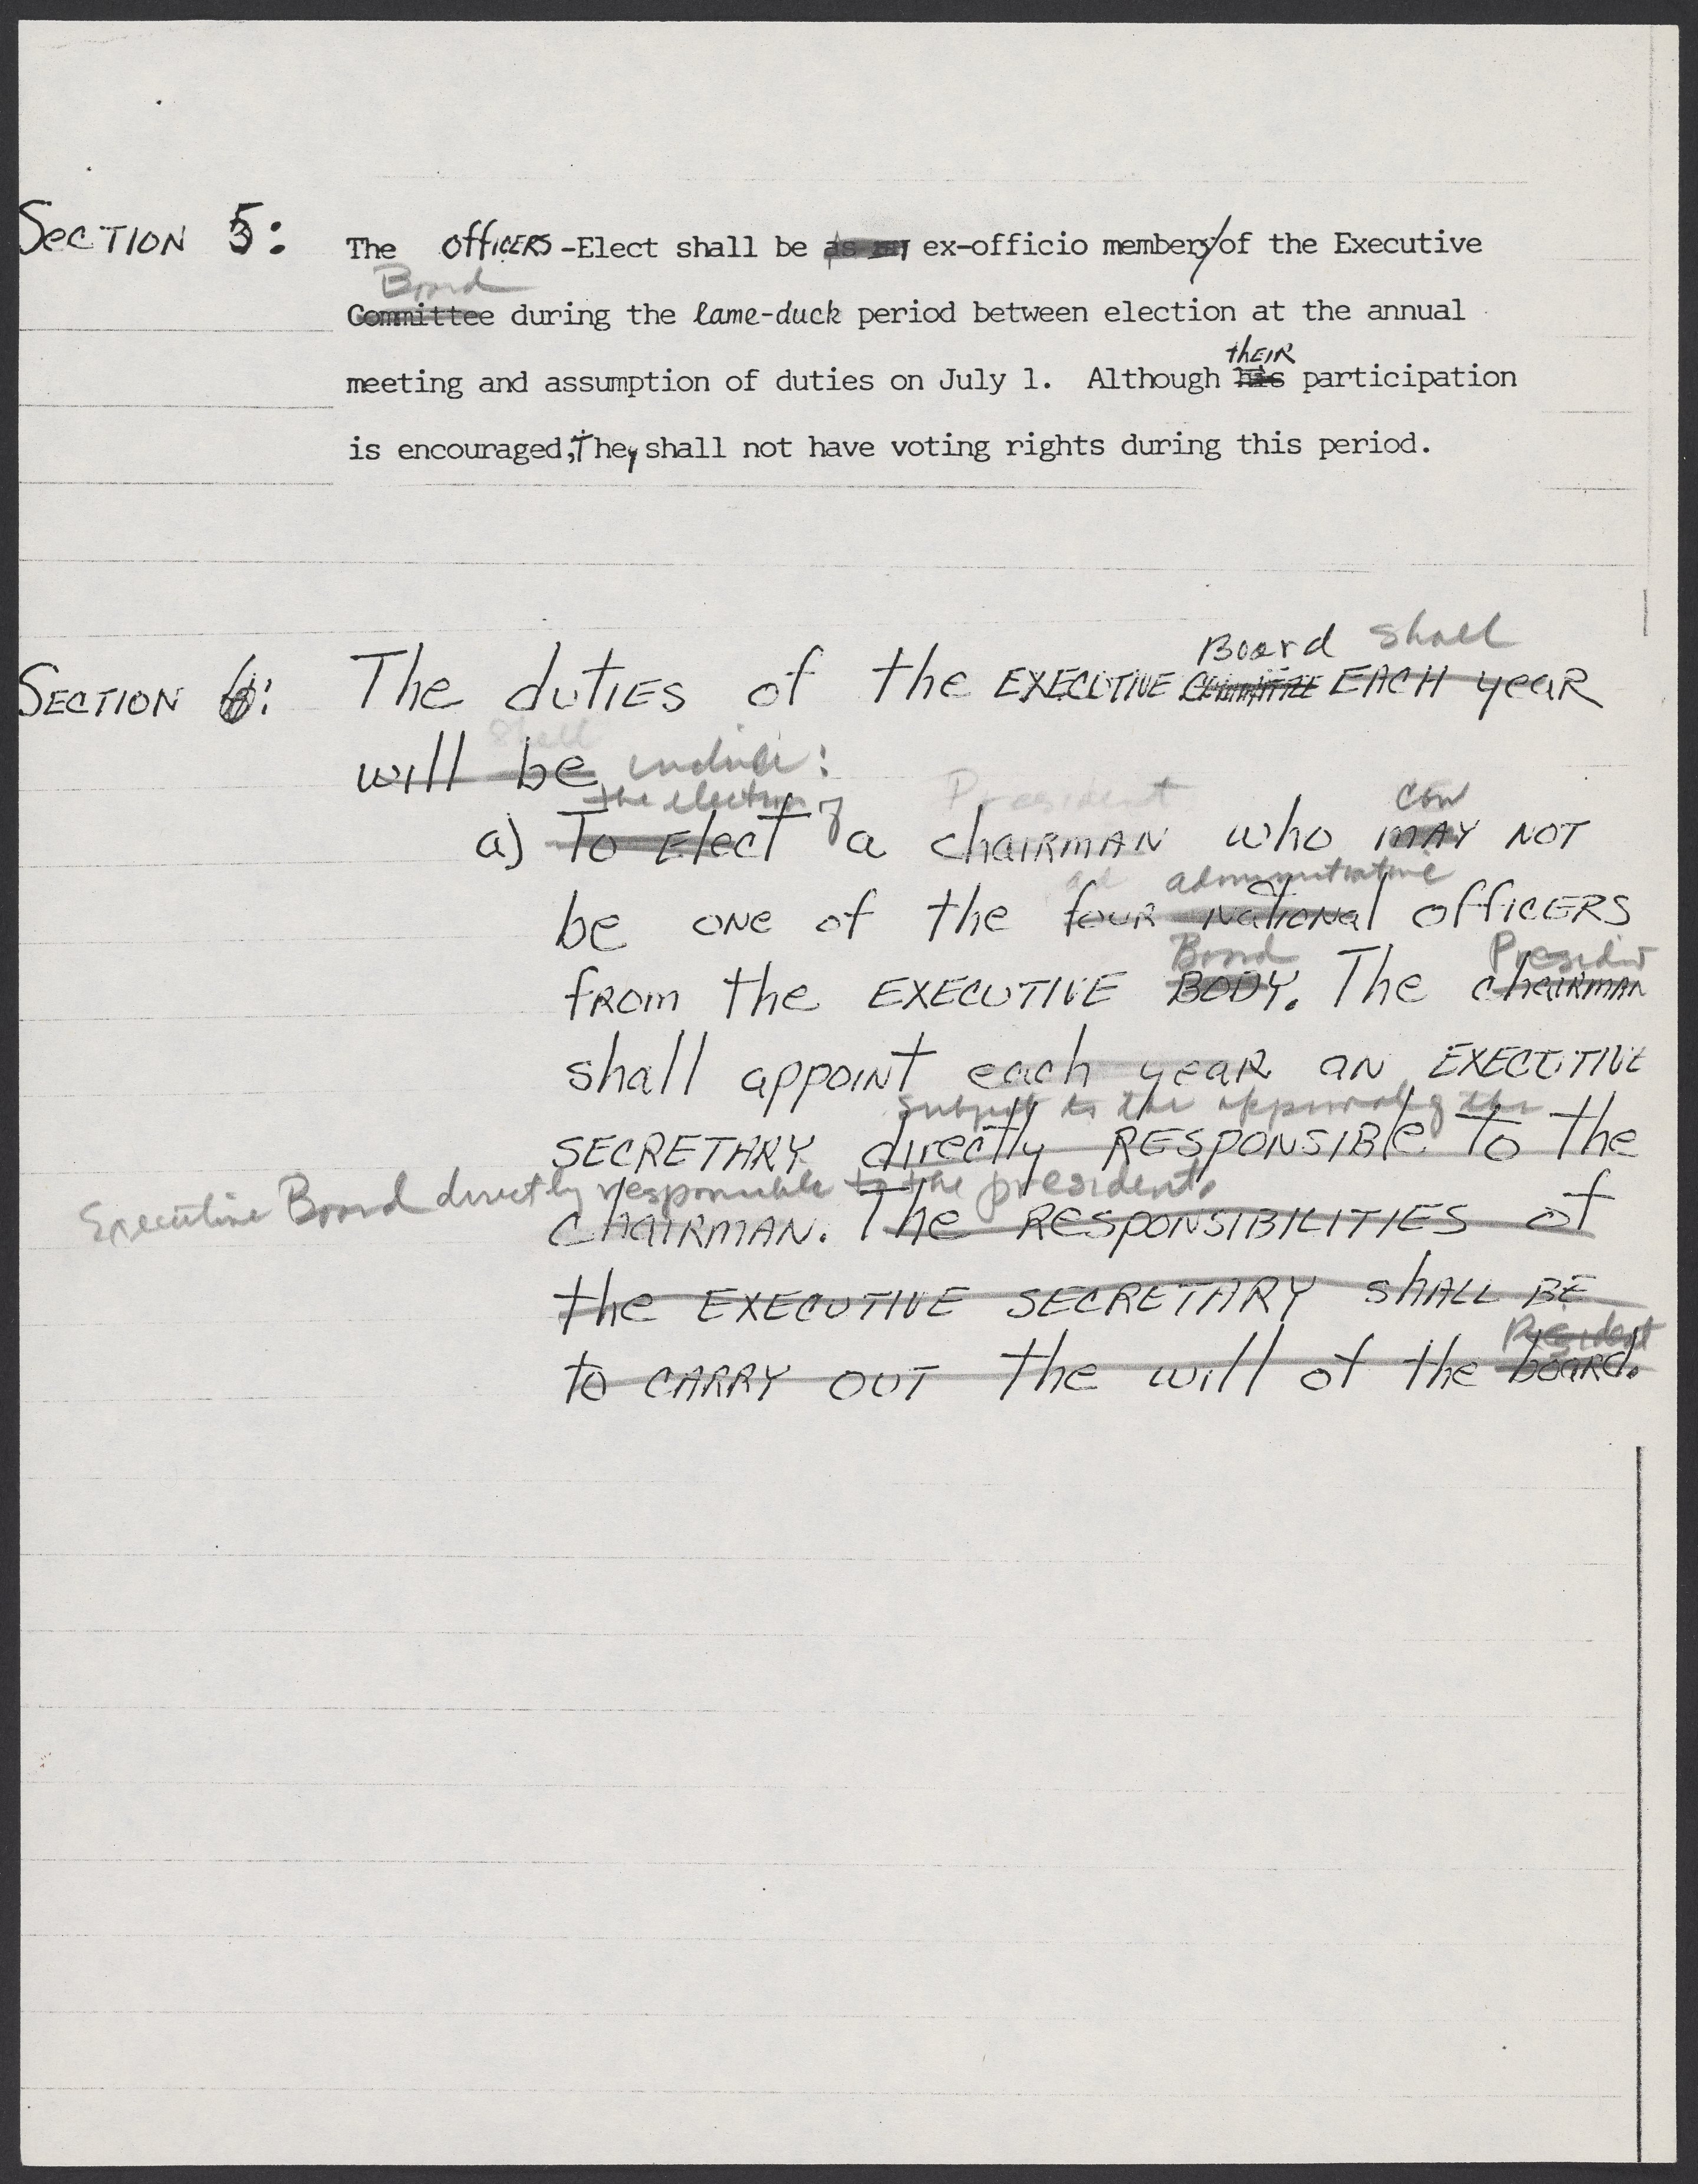 Section 5: The Officers-Elect shall be as an ex-officio members of the Executive
Board
Committee during the lame-duck period between election at the annual
their
meeting and assumption of duties on July 1. Although his participation
is encouraged, They shall not have voting rights during this period.
Board shall
Section 6: The duties of the EXECUTIVE Committee EACH year
shall
will be include:
the election of President can
a) To Elect a chairman who may NOT
ad administrative
be one of the four national officers
Board President
from the EXECUTIVE BODY. The chairman
shall appoint each year an EXECUTIVE
subject to the approval of the
SECRETARY directly RESPONSIBLE to the
Executive Board directly responsible to the president.
chairman. The RESPONSIBILITIES of
the EXECUTIVE SECRETARY shall BE
President
to CARRY OUT the will of the board.